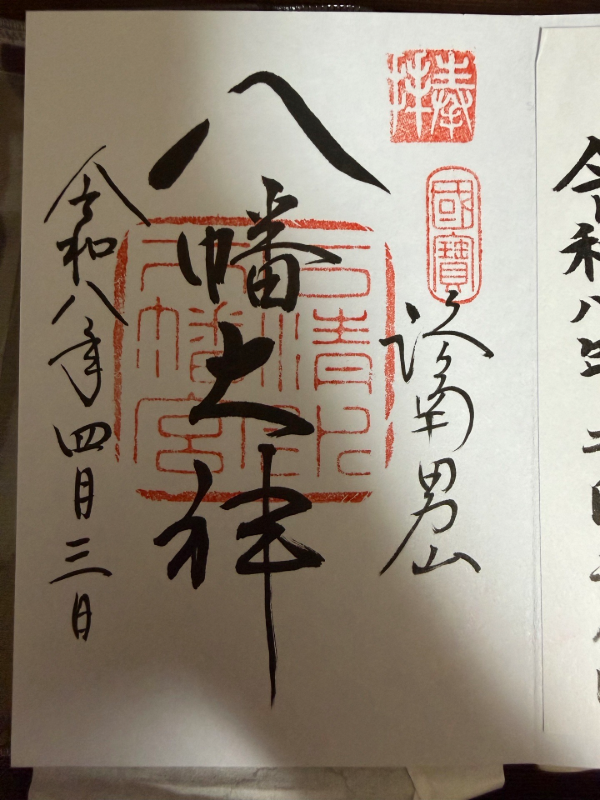 奉拝
國寶
洛南男山
八幡大神
石清水八幡宮
令和八年四月三日
令和八年